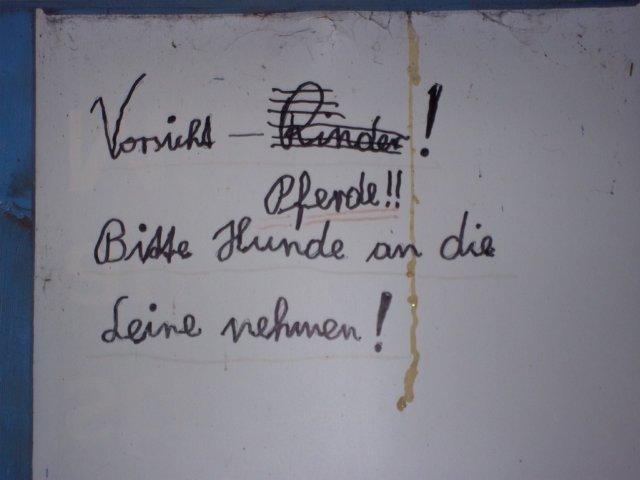 Vorsicht - Kinder!
Pferde!!
Bitte Hunde an die
Leine nehmen!